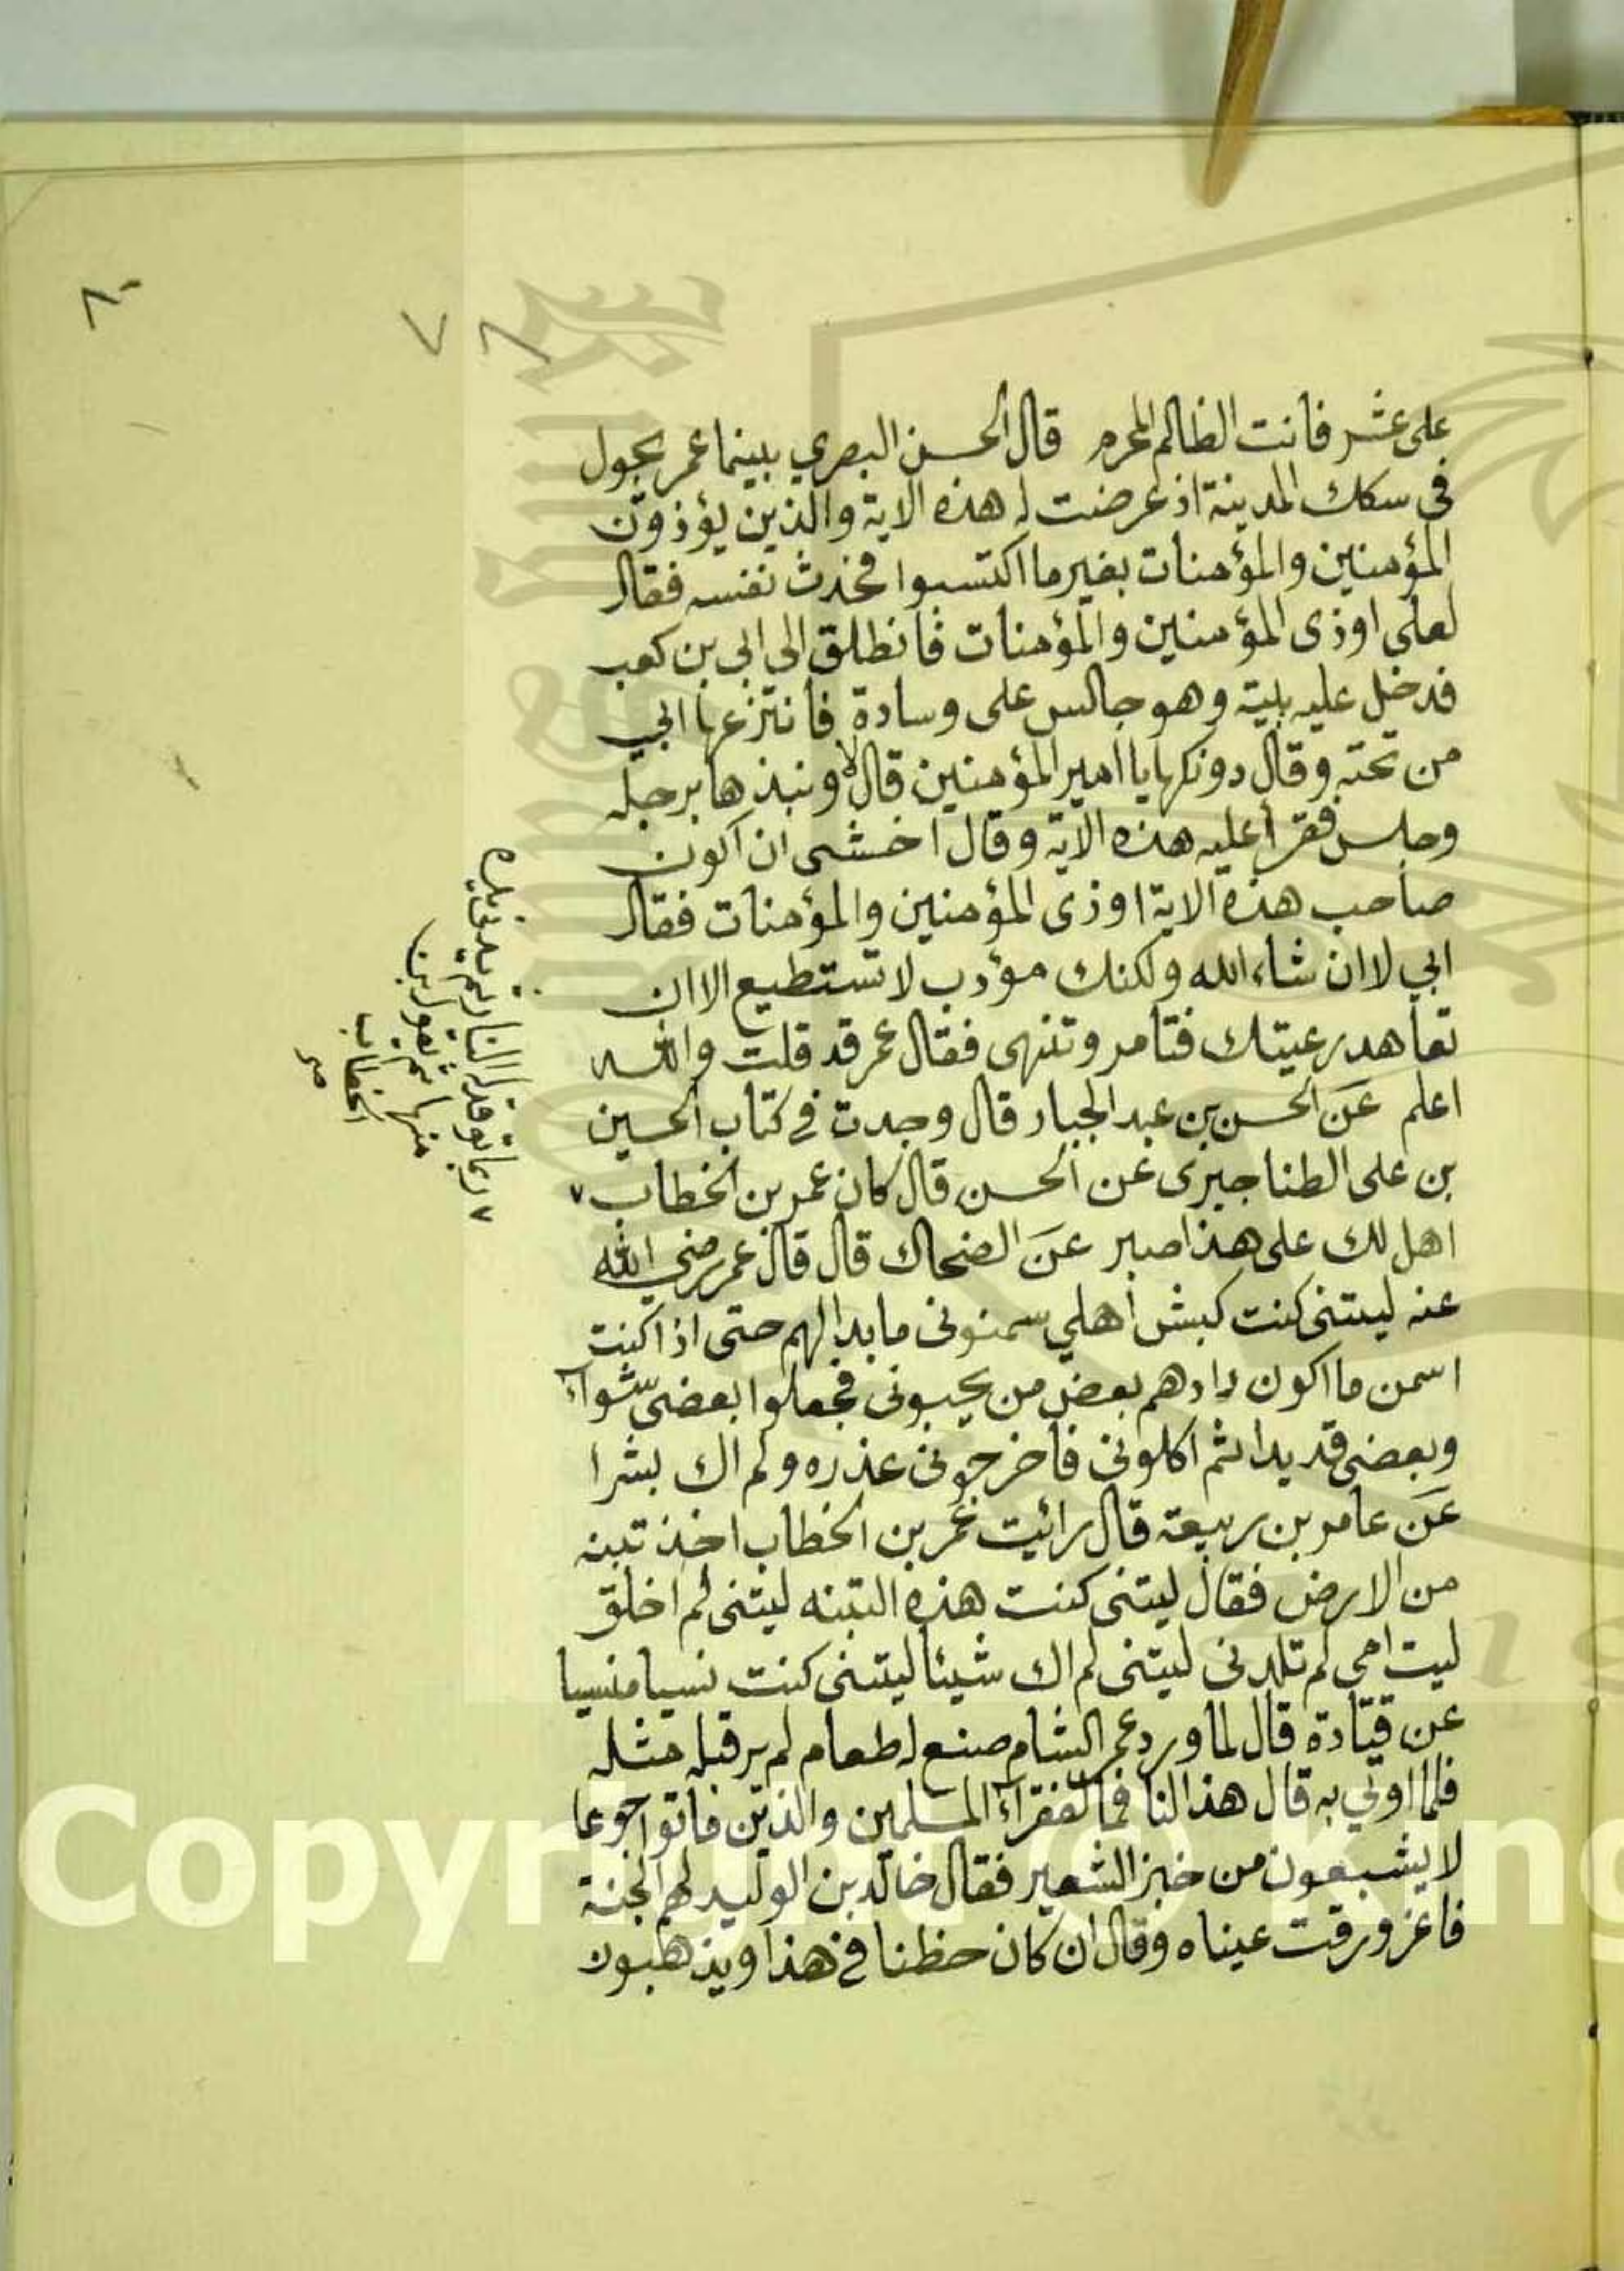 ٨٠
٧٨
على عشر فانت الظالم المجرم قال الحسن البصري بينما عمر يجول
فى سكك المدينة اذ عرضت له هذه الاية والذين يؤذون
المؤمنين والمؤمنات بغير ما اكتسبوا فحدث نفسه فقال
لعلى اوذى المؤمنين والمؤمنات فانطلق الى ابى بن كعب
فدخل عليه بيته وهو جالس على وسادة فانتزعها ابي
من تحته وقال دونكها يا امير المؤمنين قال لا ونبذها برجله
وجلس فقرأ عليه هذه الاية وقال اخشى ان اكون
صاحب هذه الاية اوذى المؤمنين والمؤمنات فقال
ابي لا ان شاء الله ولكنك مؤدب لا تستطيع الا ان
تعاهد رعيتك فتامر وتنهى فقال عمر قد قلت والله
اعلم عن الحسن بن عبد الجبار قال وجدت في كتاب الحسين
بن على الطناجيرى عن الحسن قال كان عمر بن الخطاب ٧
اهل لك على هذا صبر عن الضحاك قال قال عمر رضي الله
عنه ليتنى كنت كبش اهلي سمنونى ما بدا لهم حتى اذا كنت
اسمن ما اكون زارهم بعض من يحبونى فجعلوا بعضى شواء
وبعضى قديدا ثم اكلونى فاخرجونى عذره ولم اك بشرا
عن عامر بن ربيعة قال رائيت عمر بن الخطاب اخذ تبنه
من الارض فقال ليتنى كنت هذه التبنه ليتنى لم اخلق
ليت امى لم تلدنى ليتنى لم اك شيئا ليتنى كنت نسيا منسيا
عن قتادة قال لما ورد عمر الشام صنع له طعام لم ير قبله مثله
فلما اوتي به قال هذا لنا فما لفقراء المسلمين والذين ماتوا جوعا
لا يشبعون من خبز الشعير فقال خالد بن الوليد لهم الجنة
فاغرورقت عيناه وقال ان كان حظنا في هذا ويذهبون
٧ ربما توقد له النار ثم يدنى يده
منها ثم يقول ابن
الخطاب
صح
Copyright © King